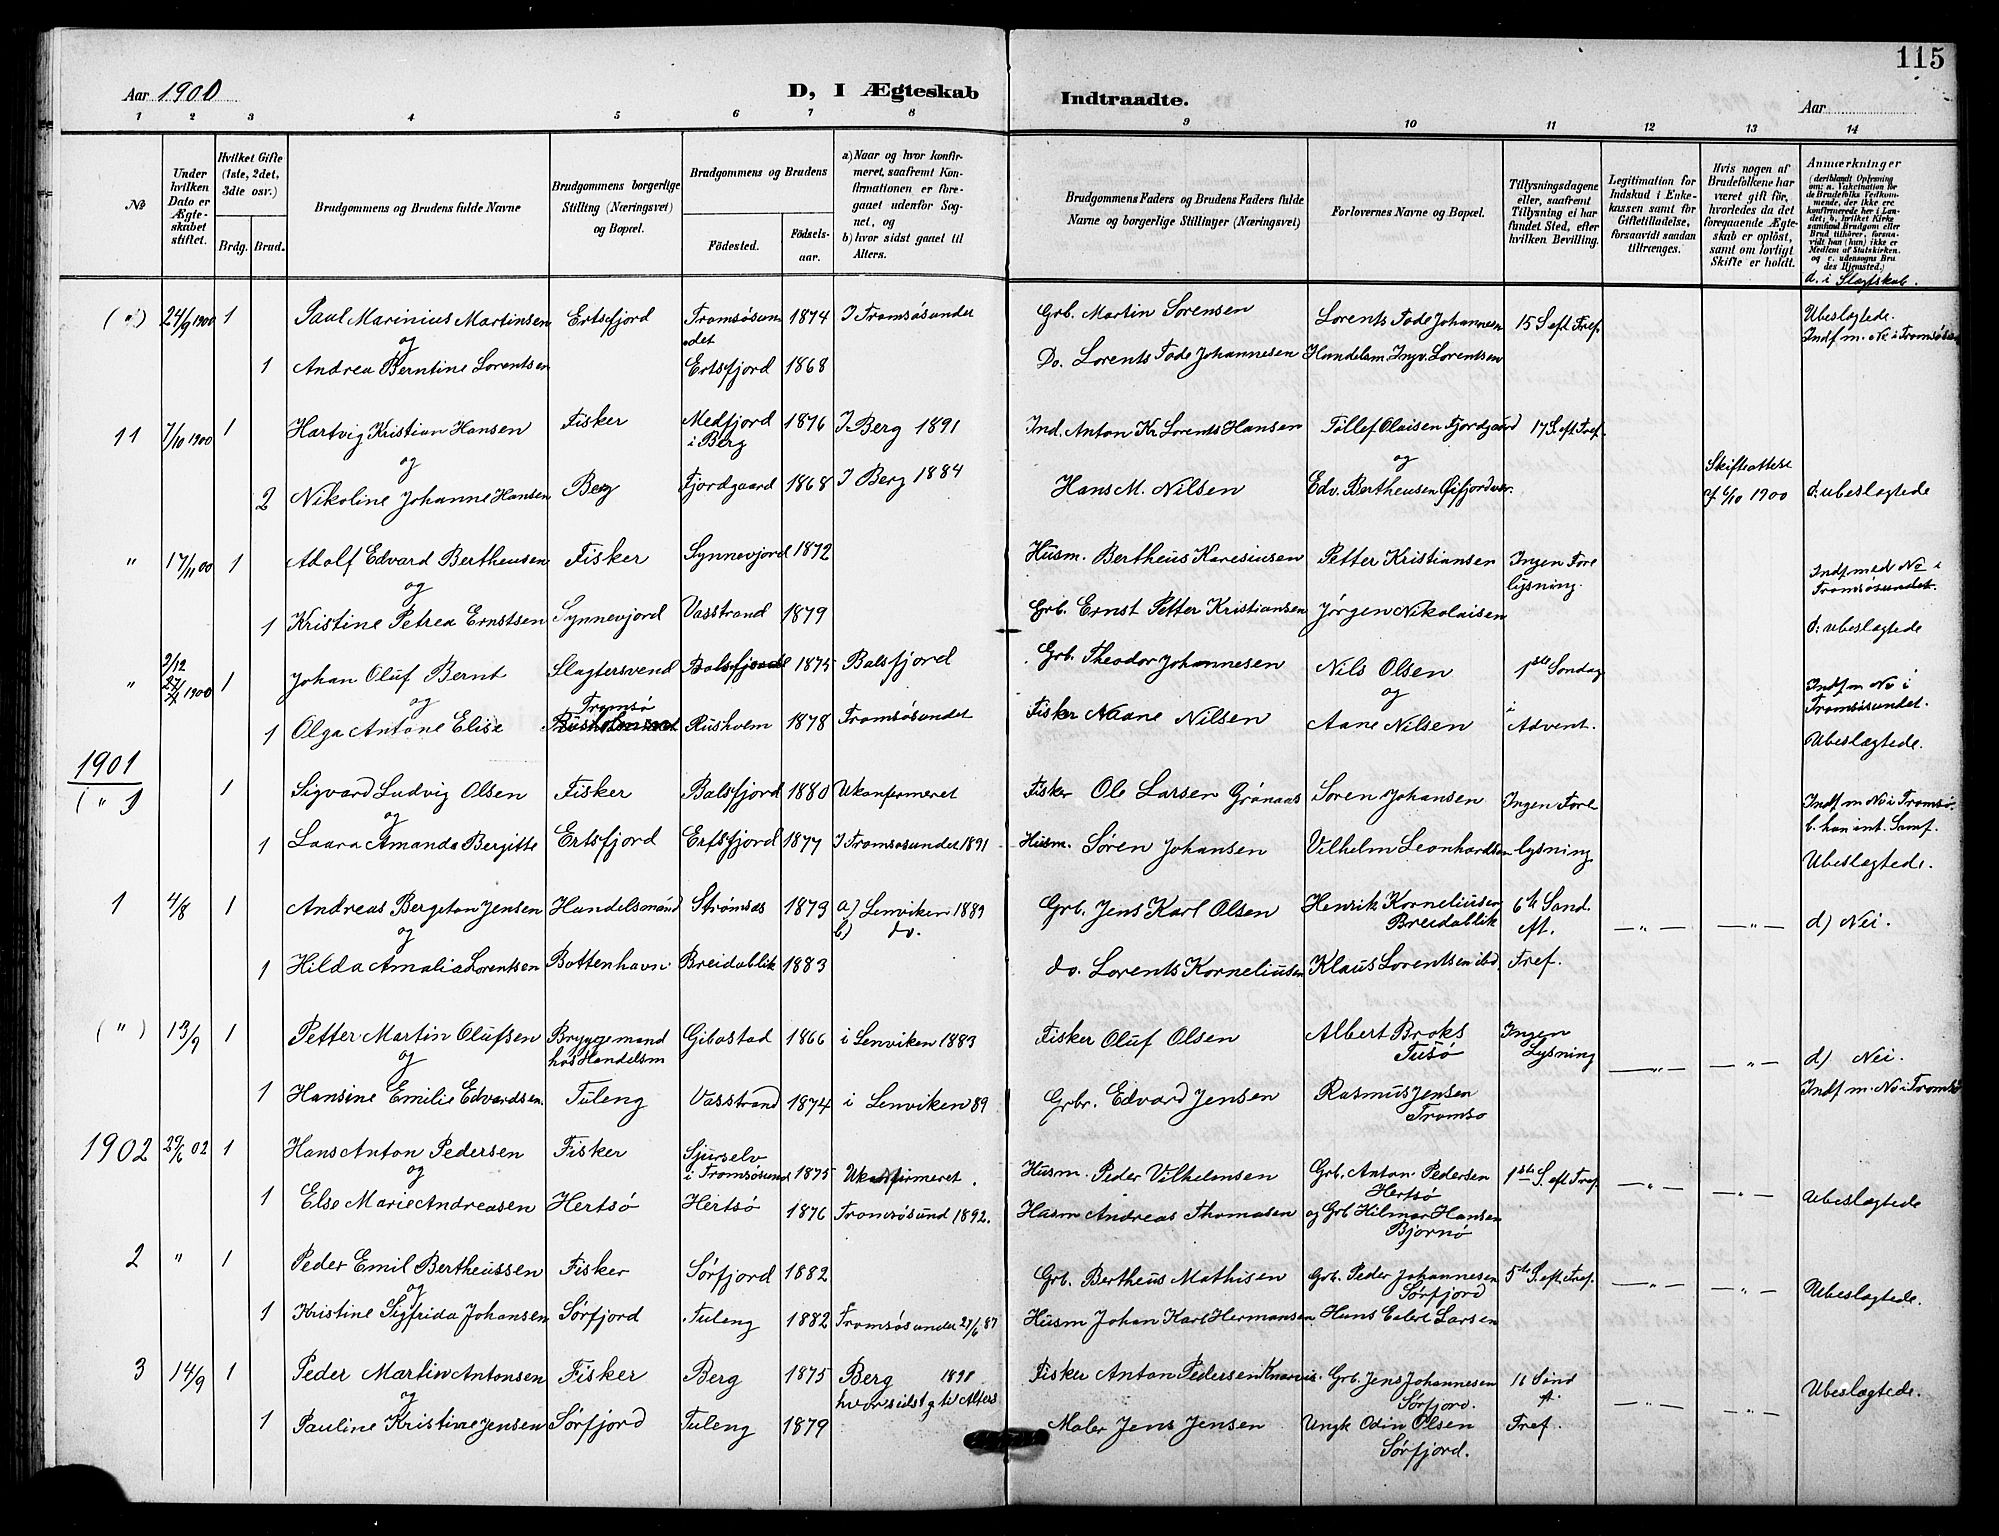 115
Aar 1900
D, I Ægteskab Indtraadte.
Aar
1 2 3 4 5 6 7 8 9 10 11 12 13 14
№
Under hvilken Dato er Ægteskabet stiftet.
Hvilket Gifte (1ste, 2det, 3die osv.)
Brdg. Brud.
Brudgommens og Brudens fulde Navne
Brudgommens borgerlige Stilling (Næringsvei) og Bopæl.
Brudgommens og Brudens
Födested. Födselsaar.
a) Naar og hvor konfirmeret, saafremt Konfirmationen er foregaaet udenfor Sognet, og
b) hvor sidst gaaet til Alters.
Brudgommens Faders og Brudens Faders fulde Navne og borgerlige Stillinger (Næringsvei)
Forlovernes Navne og Bopæl.
Tillysningsdagene eller, saafremt Tillysning ei har fundet Sted, efter hvilken Bevilling.
Legitimation for Indskud i Enkekassen samt for Giftetilladelse, forsaavidt saadan tiltrænges.
Hvis nogen af Brudefolkene har været gift för, hvorledes da det foregaaende Ægteskab er oplöst, samt om lovligt Skifte er holdt.
Anmærkninger (deriblandt Oplysning om: a. Vakcination for de Brudefolks Vedkommende, der ikke ere konfirmerede her i Landet; b. hvilket Kirkesamfund Brudgom eller Brud tilhörer, forsaavidt han (hun) ikke er Medlem af Statskirken, og c. udensogns Brudes Hjemsted.)
d. i Slagtskab.
(") 24/9 1900 1 Paul Marinius Martinsen Ertsfjord Tromsøsundet 1874 I Tromsøsundet Grb. Martin Sørensen Lorents Tode Johannesen 15 S. eft Tref. Ubeslagtede. Indf m. No i Tromsøsun
og
1 Andrea Berntine Lorentsen Ertsfjord 1868 Do. Lorents Tode Johannesen Handelsm. Ingv. Lorentsen
11 7/10 1900 1 Hartvig Kristian Hansen Fisker Medfjord i Berg 1876 I Berg 1891 Ind. Anton Kr. Lorents Hansen Tollef Olaisen Fjordgård 17 S. eft Tref.
og
2 Nikoline Johanne Hansen Berg Fjordgaard 1868 I Berg 1884 Hans M. Nilsen og Edv. Bertheusen Skifteattest af 6/10 1900 d: ubeslagtede
" 17/11 00 1 Adolf Edvard Bertheusen Fisker Synnevjord 1872 Husm. Bertheus Karesiusen Petter Kristiansen Ingen Forelysning. Indf med No i Tromsøsundet.
og
1 Kristine Petrea Ernstsen Synnevjord Vasstrand 1879 Grb. Ernst Petter Kristiansen Jørgen Nikolaisen d: ubeslagtede
" 2/12 1900 1 Johan Oluf Bernt Slagtersvend Balsfjord 1875 Balsfjord Grb. Theodor Johannesen Nils Olsen 1ste Søndag Indf m No i Tromsøsundet.
og
1 Olga Antone Elise Tromsø Rushvem 1878 Tromsøsundet Fisker Naane Nilsen og Aane Nilsen i Advent. Ubeslagtede.
1901
(") 1 Sigvard Ludvig Olsen Fisker Balsfjord 1880 Ukonfirmeret Fisker Ole Larsen Grønaas Søren Johansen Ingen Fore Indf m No i Tromsø. b. han int. Samf.
og
1 Laara Amanda Bergitte Ertsfjord Ertsfjord 1877 I Tromsøsundet 1891 Husm. Søren Johansen Vilhelm Leonhardsen lysning Ubeslagtede.
1 4/8 1 Andreas Bergeton Jensen Handelsmand Strømsøs 1879 a) Lenviken 1889 b) do. Grb. Jens Karl Olsen Henrik Korneliusen Breidablik 6te Sønd. eft. —"— —"— d) Nei.
og
1 Hilda Amalia Lorentsen Bottenhavn Breidablik 1883 do. Lorents Korneliusen Klaus Lorentsen ibd. Tref.
(") 13/9 1 Petter Martin Olufsen Bryggemand hos Handelsm Gibostad 1866 i Lenviken 1883 Fisker Oluf Olsen Albert Broks Tusø Ingen Lysning —"— —"— d) Nei.
og
1 Hansine Emilie Edvardsen Tuleng Vasstrand 1874 i Lenviken 89 Grbr. Edvard Jensen Rasmus Jensen Tromsø Indf m. No i Tromsø
1902 29/6 02 1 Hans Anton Pedersen Fisker Sjurselv i Tromsøsund 1875 Ukonfirmeret. Husm. Peder Vilhelmsen Grb. Anton Pedersen Hertsø 1ste S. eft Tref —"— —"—
og
1 Else Marie Andreasen Hertsø Hertsø 1876 Tromsøsund 1892. Husm Andreas Thomasen og Grb Hilmar Hansen Bjørnø Ubeslagtede
2 " 1 Peder Emil Bertheussen Fisker Sørfjord 1882 Grb. Bertheus Mathisen Grb. Peder Johannesen Sørfjord 5te S. eft. Tref. —"— —"— Ubeslagtede.
og
1 Kristine Sigfrida Johansen Sørfjord Tuleng 1882 Tromsøsundet 27/6 87 Husm Johan Karl Hermansen Hans Eilert Larsen
3 14/9 1 Peder Martin Antonsen Fisker Berg 1875 Berg 1891 hvor sidst g. til Alters Fisker Anton Pedersen Grb. Jens Johannesen Sørfjord. 16 Sønd ft. —"— —"— Ubeslagtede.
og
1 Pauline Kristine Jensen Sørfjord Tuleng 1879 Maler Jens Jensen Ungk Odin Olsen Sørfjord. Tref.